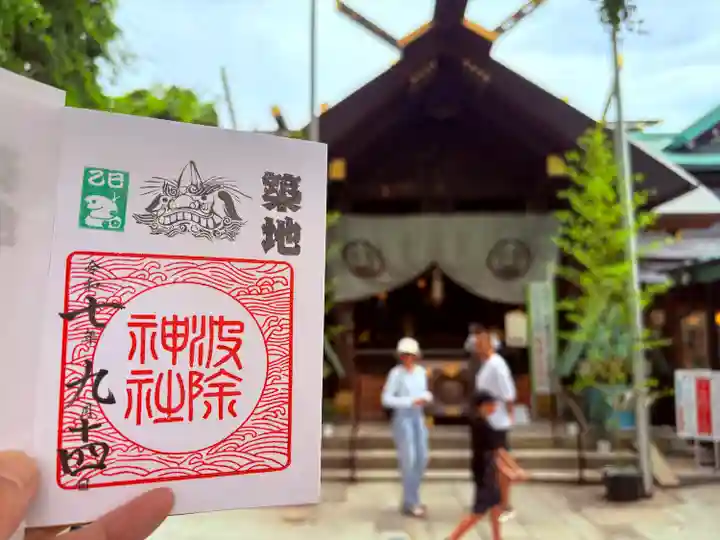 築地
乙巳
波除
神社
令和七年九月十四日